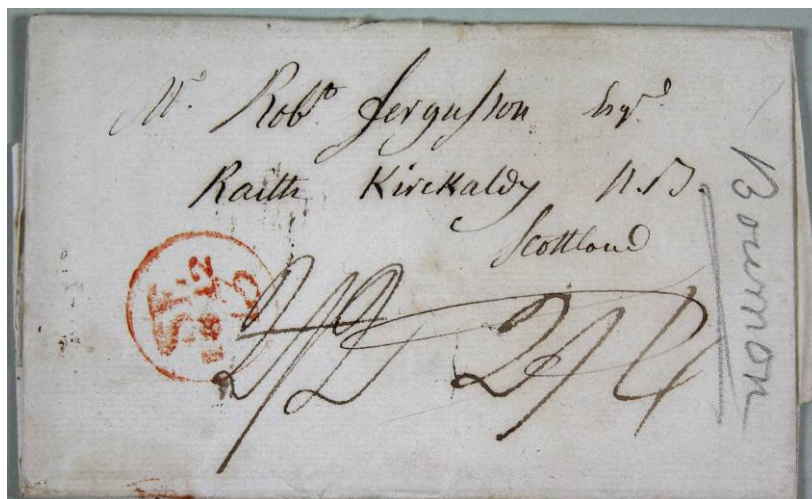 Mr. Robt. Fergusson Esqr.
Raith Kirckaldy N.B.
Scottland
2/2 2/4
Bournon